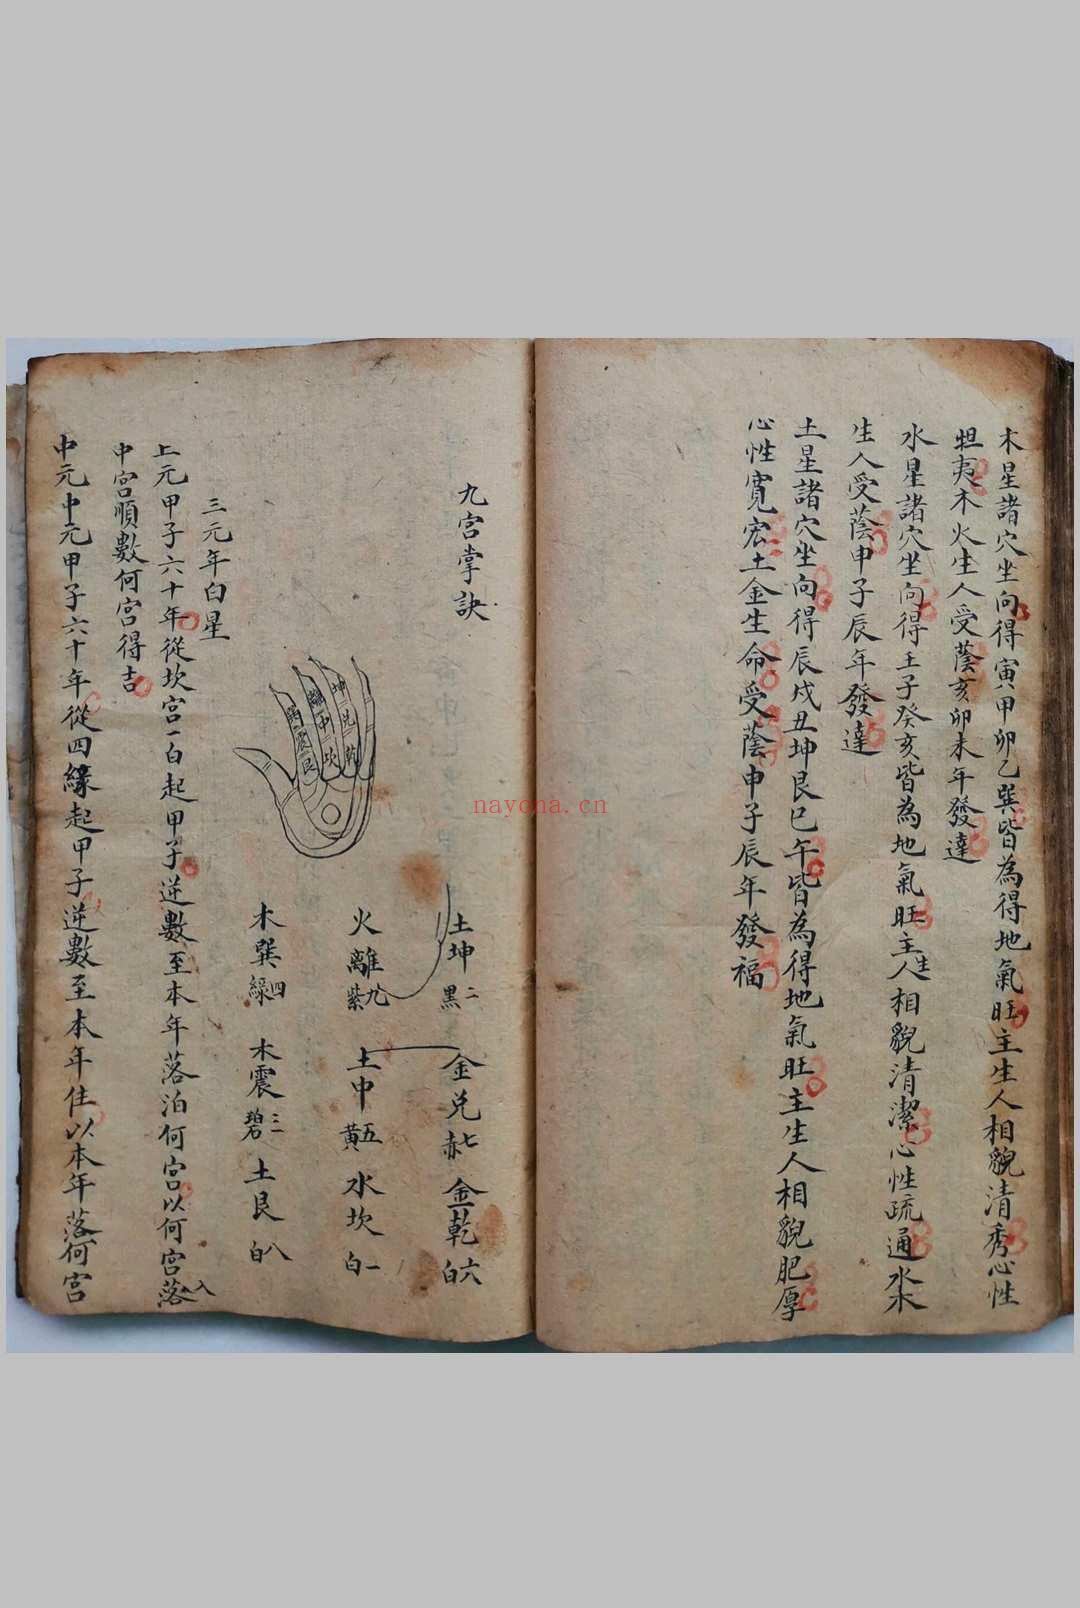 木星諸穴坐向得寅甲卯乙巽皆為得地氣旺主生人相貌清秀心性
坦夷木火生人受蔭亥卯未年發達
水星諸穴坐向得壬子癸亥皆為地氣旺主生人相貌清潔心性疏通水木
生人受蔭申子辰年發達
土星諸穴坐向得辰戌丑坤艮巳午皆為得地氣旺主生人相貌肥厚
心性寬宏土金生命受蔭申子辰年發福
九宮掌訣
坤兌乾
離中坎
震艮
土坤二黑 金兌七赤 金乾六白
火離九紫 土中五黃 水坎一白
木巽四綠 木震三碧 土艮八白
三元年白星
上元甲子六十年從坎宮一白起甲子逆數至本年落泊何宮以何宮落入
中宮順數何宮得吉
中元中元甲子六十年從四緣起甲子逆數至本年住以本年落何宮
nayona.cn